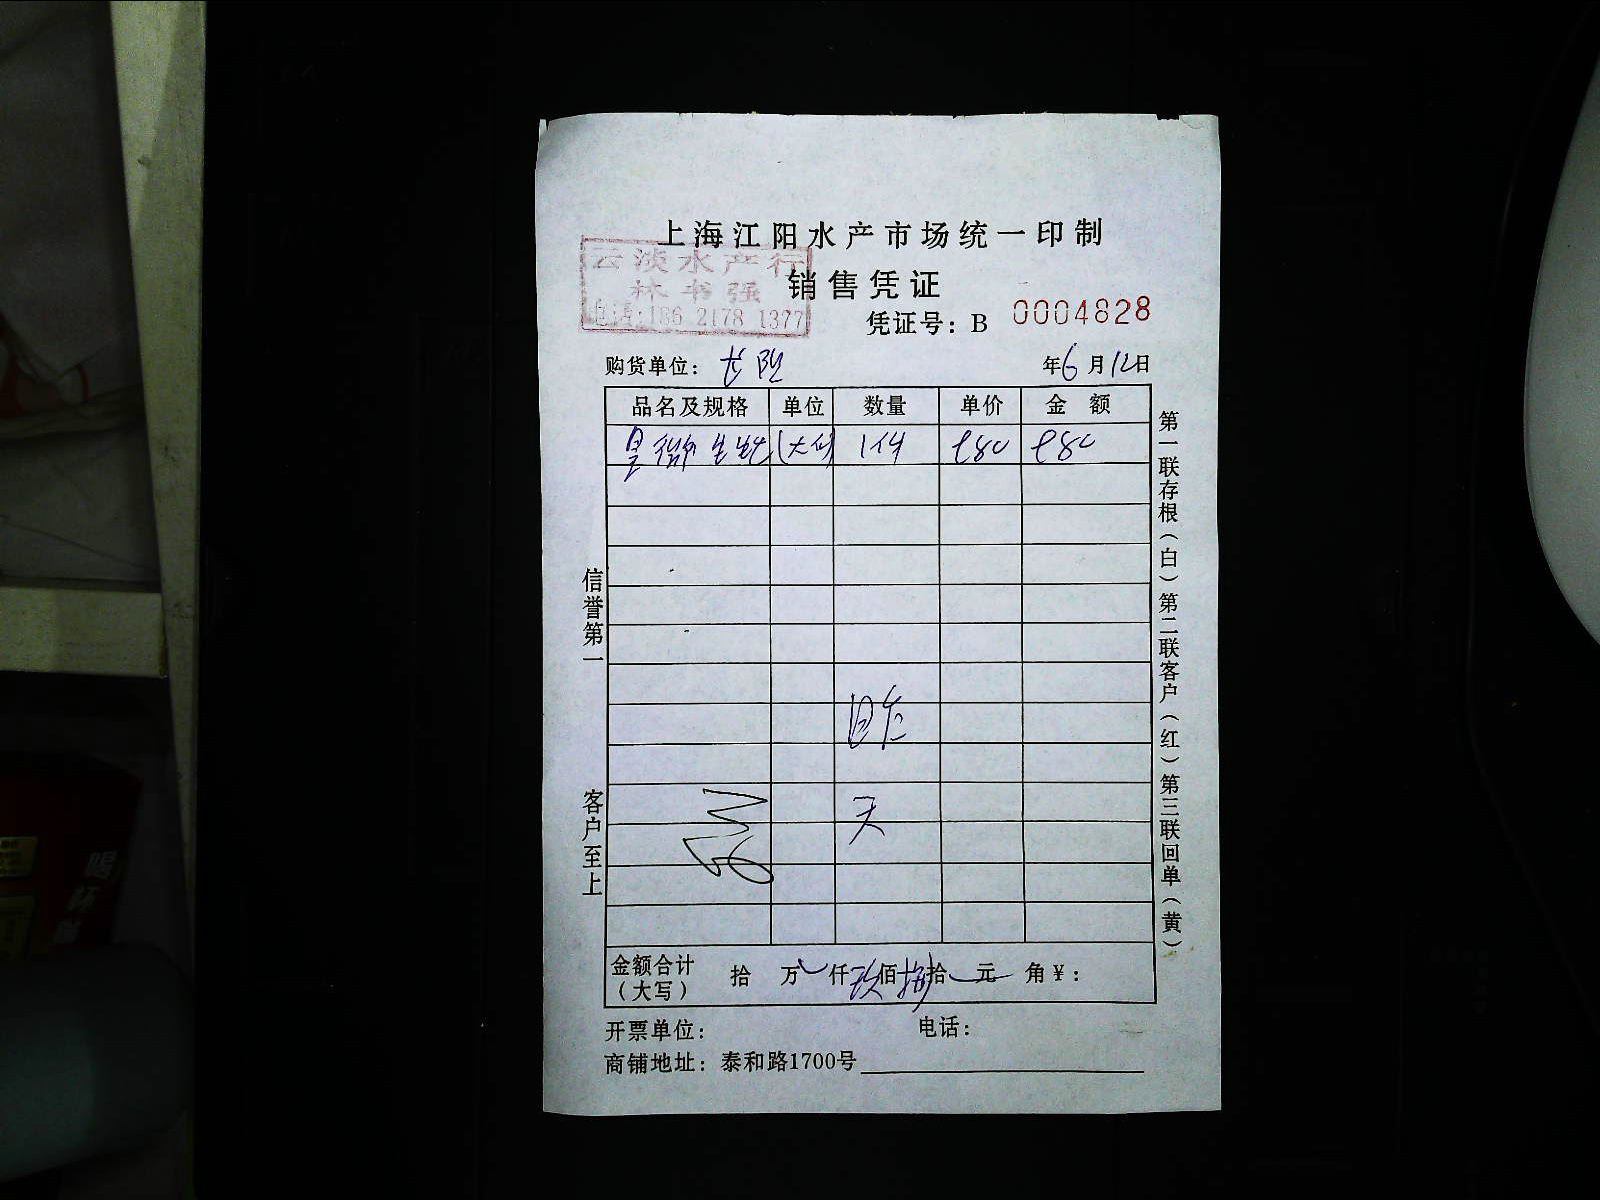 上海江阳水产市场统一印制
云淡水产行
林书强
电话:186 2178 1377
销售凭证
凭证号: B 0004828
购货单位:
年6月12日
品名及规格 单位 数量 单价 金 额
1件 980 980
昨
天
信誉第一
客户至上
第一联存根(白)第二联客户(红)第三联回单(黄)
金额合计(大写) 拾 万 仟 玖佰 捌拾 元 角 ¥:
开票单位: 电话:
商铺地址: 泰和路1700号